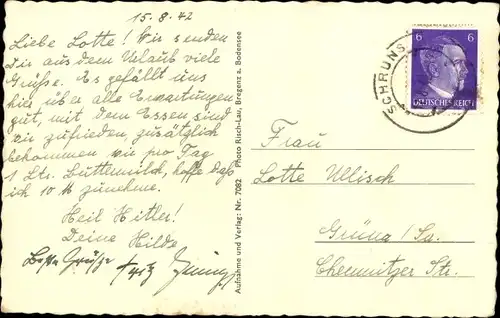 15.8.42
Liebe Lotte! Wir senden
Dir aus dem Urlaub viele
Grüße. Es gefällt uns
hier über alle Erwartungen
gut, mit dem Essen sind
wir zufrieden, zusätzlich
bekommen wir pro Tag
1 Ltr. Buttermilch, hoffe daß
ich 10 zunehme.
Heil Hitler!
Deine Hilde
Beste Grüße Fritz
Aufnahme und Verlag: Nr. 7092 Photo Risch-Lau, Bregenz a. Bodensee
SCHRUNS
6 6
DEUTSCHES REICH
Frau
Lotte Ullisch
Grüna/Sa.
Chemnitzer Str.